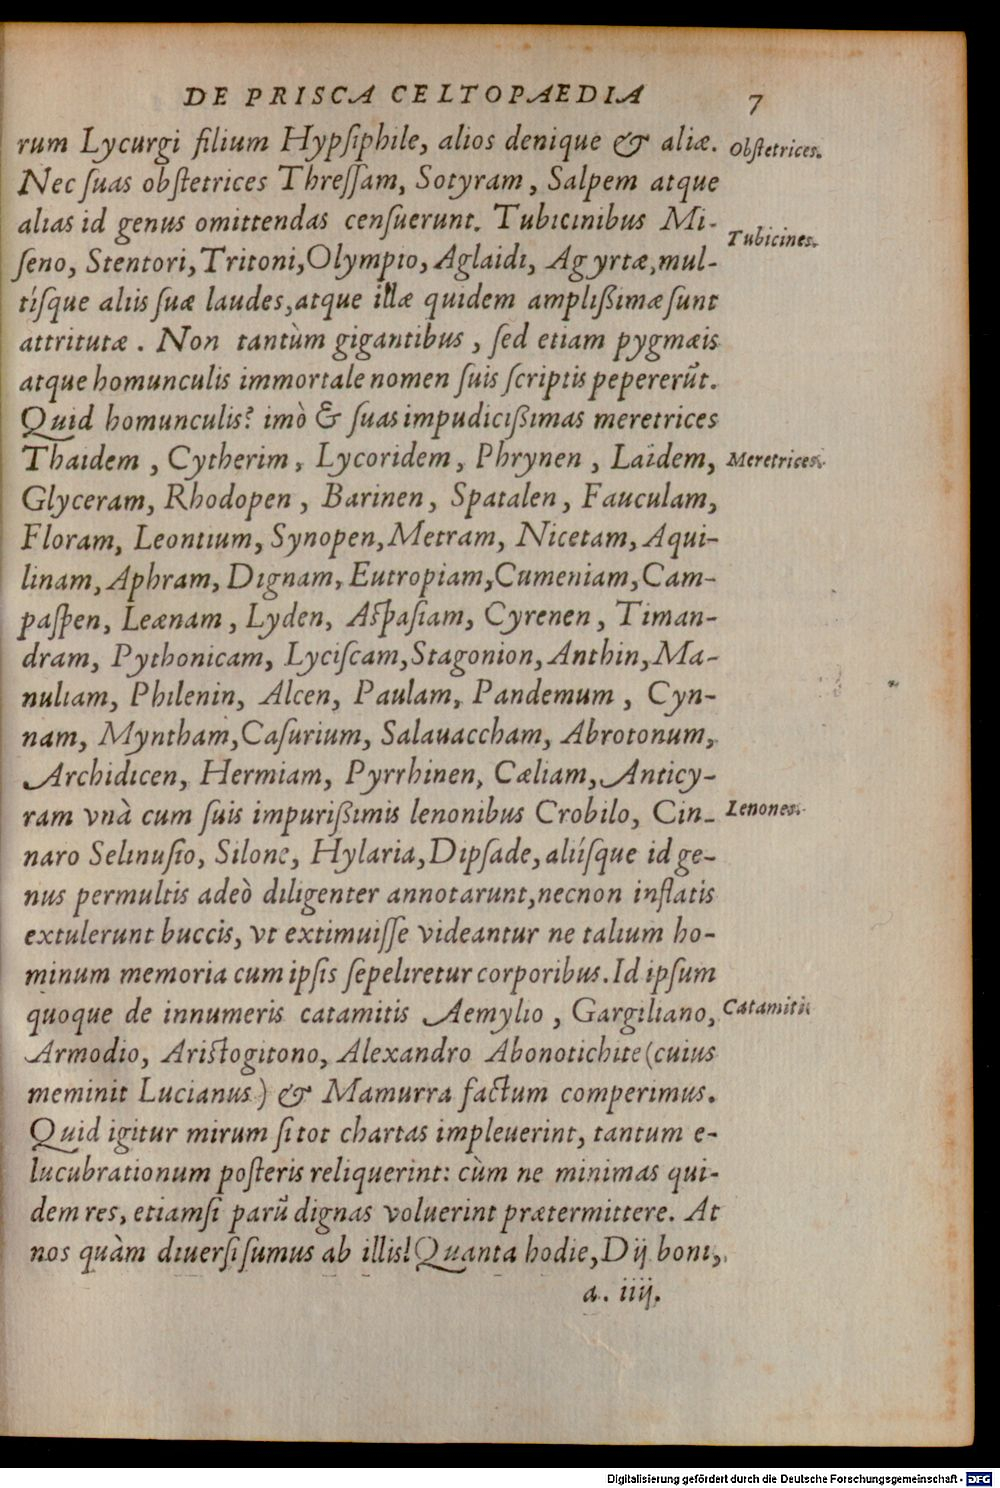 DE PRISCA CELTOPAEDIA 7
rum Lycurgi filium Hypſiphile, alios denique & aliæ. Obſtetrices.
Nec ſuas obſtetrices Threſſam, Sotyram, Salpem atque
alias id genus omittendas cenſuerunt. Tubicinibus Mi- Tubicines.
ſeno, Stentori, Tritoni, Olympio, Aglaidi, Agyrtæ, mul-
tíſque aliis ſuæ laudes, atque illæ quidem amplißimæ ſunt
attritutæ. Non tantùm gigantibus, ſed etiam pygmæis
atque homunculis immortale nomen ſuis ſcriptis pepererũt.
Quid homunculis? imò & ſuas impudicißimas meretrices
Thaidem, Cytherim, Lycoridem, Phrynen, Laidem, Meretrices.
Glyceram, Rhodopen, Barinen, Spatalen, Fauculam,
Floram, Leontium, Synopen, Metram, Nicetam, Aqui-
linam, Aphram, Dignam, Eutropiam, Cumeniam, Cam-
paſpen, Leænam, Lyden, Aſpaſiam, Cyrenen, Timan-
dram, Pythonicam, Lyciſcam, Stagonion, Anthin, Ma-
nuliam, Philenin, Alcen, Paulam, Pandemum, Cyn-
nam, Myntham, Caſurium, Salauaccham, Abrotonum,
Archidicen, Hermiam, Pyrrhinen, Cæliam, Anticy-
ram vnà cum ſuis impurißimis lenonibus Crobilo, Cin- Lenones.
naro Selinuſio, Silone, Hylaria, Dipſade, aliíſque id ge-
nus permultis adeò diligenter annotarunt, necnon inflatis
extulerunt buccis, vt extimuiſſe videantur ne talium ho-
minum memoria cum ipſis ſepeliretur corporibus. Id ipſum
quoque de innumeris catamitis Aemylio, Gargiliano, Catamiti
Armodio, Ariſtogitono, Alexandro Abonotichite (cuius
meminit Lucianus) & Mamurra factum comperimus.
Quid igitur mirum ſi tot chartas impleuerint, tantum e-
lucubrationum poſteris reliquerint: cùm ne minimas qui-
dem res, etiamſi parũ dignas voluerint prætermittere. At
nos quàm diuerſi ſumus ab illis! Quanta hodie, Dij boni,
a. iiij.
Digitalisierung gefördert durch die Deutsche Forschungsgemeinschaft - DFG